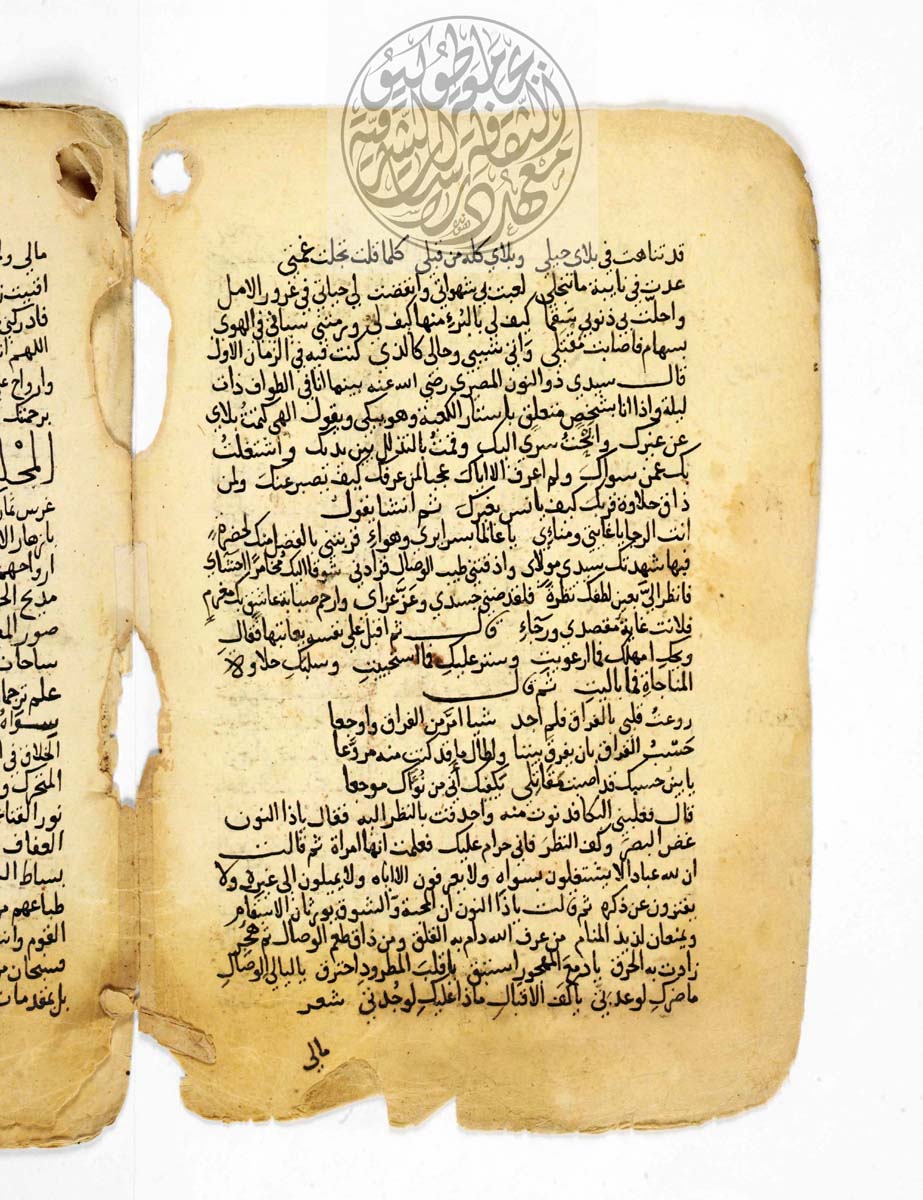 قد تناهت في بلاي حيلي وبلاي كله من قبلي كلما قلت تجلت غمتي
عدت في نايبة ما تنجلي لعبت بي شهواتي وانقضت لي حياتي في غرور الامل
واحلت بي ذنوبي سقما كيف لي بالبرء منها كيف لي ورمتني سياتي في الهوى
بسهام فاصابت مقتلي واتى شيبي وحالي كالذي كنت فيه في الزمان الاول
قال سيدي ذو النون المصري رضي الله عنه بينما انا في الطواف ذات
ليلة واذا انا بشخص متعلق باستار الكعبة وهو يبكي ويقول الهي كتمت بلاي
عن غيرك وابحت سري اليك وقمت بالتذلل بين يديك واشتغلت
بك عمن سواك ولم اعرف الا اياك عجبا لمن عرفك كيف يصبر عنك ولمن
ذاق حلاوة قربك كيف يانس بغيرك ثم انشا يقول
انت الرجا يا غايتي ومناءي يا عالما سرايري وهواء قربتني بالفضل منك لحضرة
فيها شهدتك سيدي مولاي واذقتني طيب الوصال فزادني شوقا اليك مخامرا احشاي
فانظر الي بعين لطفك نظرة فلقد ضني جسدي وعز عزاي وارحم صبابة عاشق بك مغرم
فلانت غاية مقصدي ورجاء قال ثم اقبل على نفسه يعاتبها فقال
ويحك امهلك فما ارعويت وستر عليك فما استحييت وسلبك حلاوة
المناجاة فما باليت ثم قال
روعت قلبي بالفراق فلم اجد شيا امر من الفراق واوجعا
حسب الفراق بان يفرق بيننا ولطال ما قد كنت منه مروعا
يا بين حسبك قد اصبت مقاتلي يكفيك اني من نواك موجعا
قال فغلبني البكا فدنوت منه واحدقت بالنظر اليه فقال ياذا النون
غض البصر وكف النظر فاني حرام عليك فعلمت انها امراة ثم قالت
ان لله عبادا لا يشتغلون بسواه ولا يعرفون الا اياه ولا يميلون الى غيره ولا
يفترون عن ذكره ثم قالت ياذا النون ان المحبة والشوق يورثان الاسقام
ويمنعان لذيذ المنام من عرف الله دام به القلق ومن ذاق طعم الوصال ثم هجر
زادت به الحرق يا دمع المهجور استبق يا قلب المطرود احترق يا ليالي الوصال
ما ضرك لو عدتي يا كف الاقبال ماذا عليك لو جدتي شعر
مالي
مالي
افنيت
فادركني
اللهم
وارواح
برحمتك
المجلس
غرس
بازهار
ارواحهم
مديح
صور
ساحات
علم
سواه
الخلاق في
المتحرك و
نور القناعة
العفاف
بساط
طباعهم
القوم
فسبحان من
بل بمقدمات
معهد الثقافة والدراسات الشرقية
جامعة طوكيو